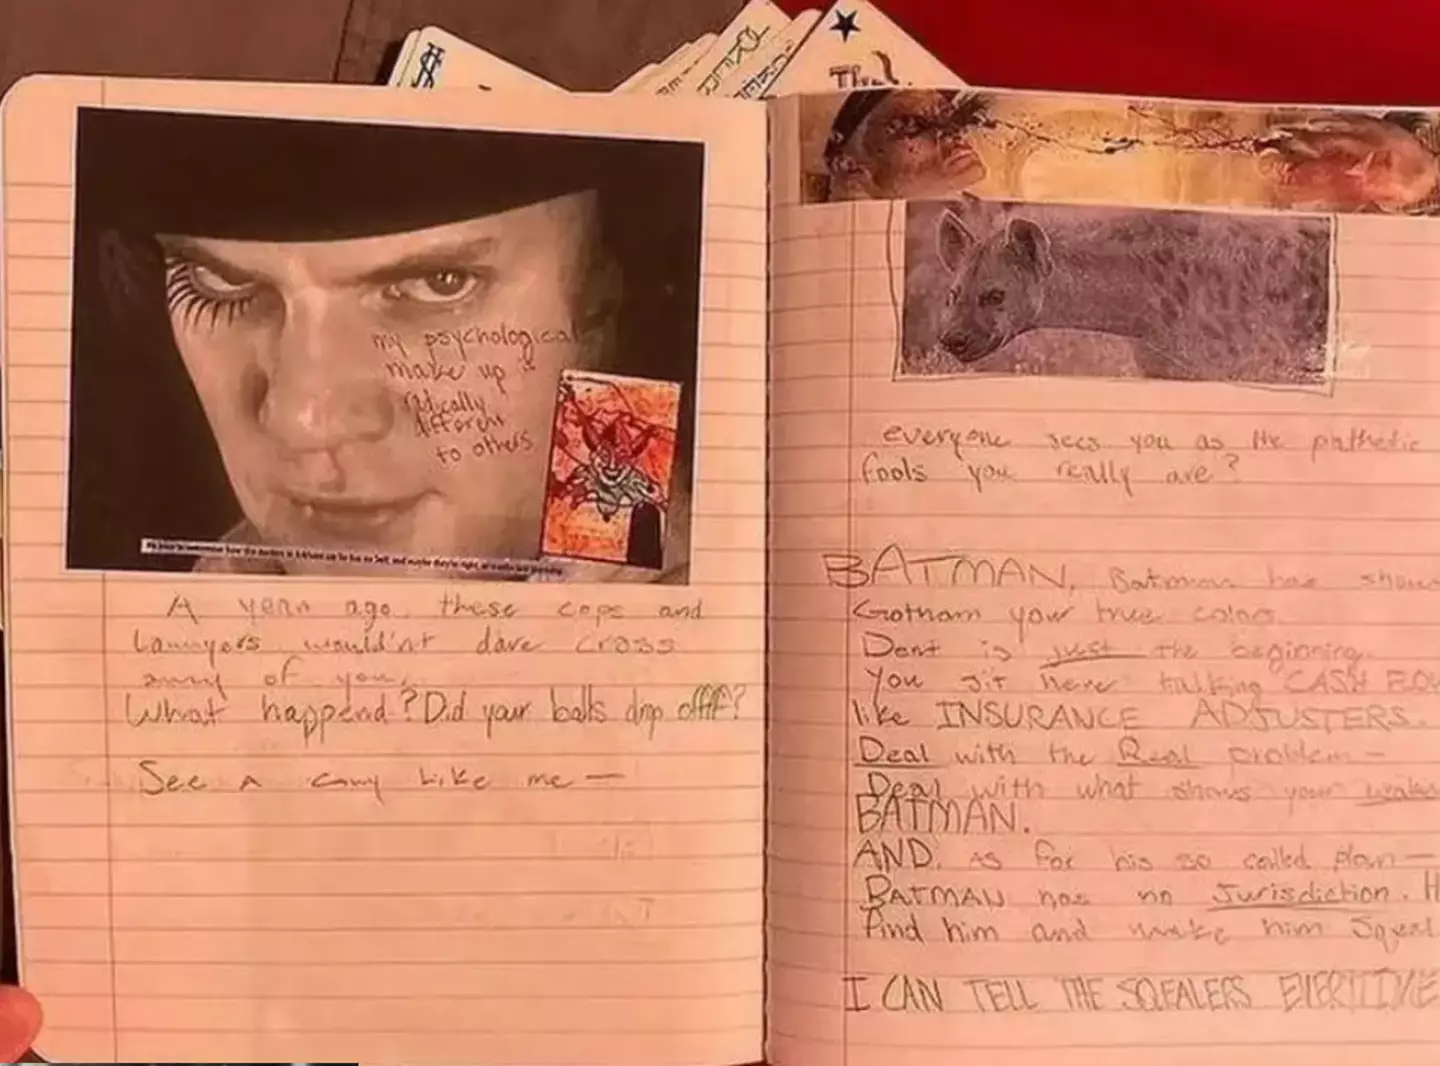 The
my psychological
make up is
radically
different
to others
A year ago, these cops and
Lawyers would'nt dare cross
anny of you,
What happend? Did your balls drop offff?
See A Guy Like me —
everyone sees you as the pathetic
fools you really are?
BATMAN. Batman has
Gotham your true colors.
Dent is just the beginning.
You sit here talking CASH
like INSURANCE ADJUSTERS.
Deal with the Real problem —
Deal with what shows your
BATMAN.
AND. As for his so called plan —
BATMAN has no Jurisdiction. H
Find him and make him Squeal
I CAN TELL THE SQEALERS EVERTIME